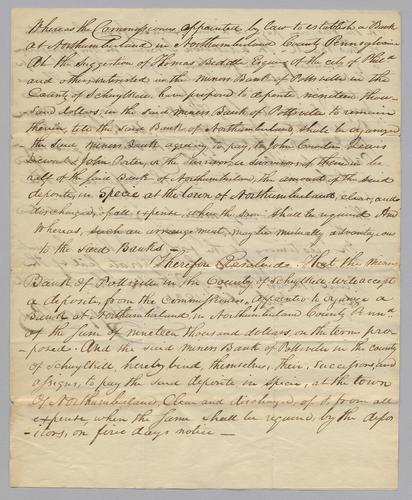 Whereas the Commissioners appointed by law to establish a Bank
at Northumberland in Northumberland County Pennsylvania
At the Suggestion of Thomas Biddle Esquire of the city of Phila
and others interested in the Miners Bank of Pottsville in the
County of Schuylkill have proposed to deposite nineteen thou-
sand dollars, in the said Miners Bank of Pottsville to remain
therein, till the said Bank of Northumberland, shall be organized
the said Miners Bank agreeing to pay, to John Cowden Lewis
Dewart & John Porter, or the survivor or survivors of them in be
half of the said Bank of Northumberland, the amount of the said
deposite, in Specie at the town of Northumberland, clear, and
discharged, of all expense, when the same shall be required And
Whereas, such an arrangement, may be mutually advantageous
to the said Banks —
Therefore Resolved. That the Miners
Bank of Pottsville in the County of Schuylkill will accept
a deposite, from the Commissioners, appointed to organize a
Bank at Northumberland, in Northumberland County
of the sum of nineteen thousand dollars, on the terms pro-
posed. And the said Miners Bank of Pottsville in the county
of Schuylkill hereby bind, themselves, their, successors, and
assigns, to pay the said deposite in Specie, at the town
Of Northumberland, Clear and discharged, of & from all
expense, when the same shall be required, by the depos
itors, on five days notice —